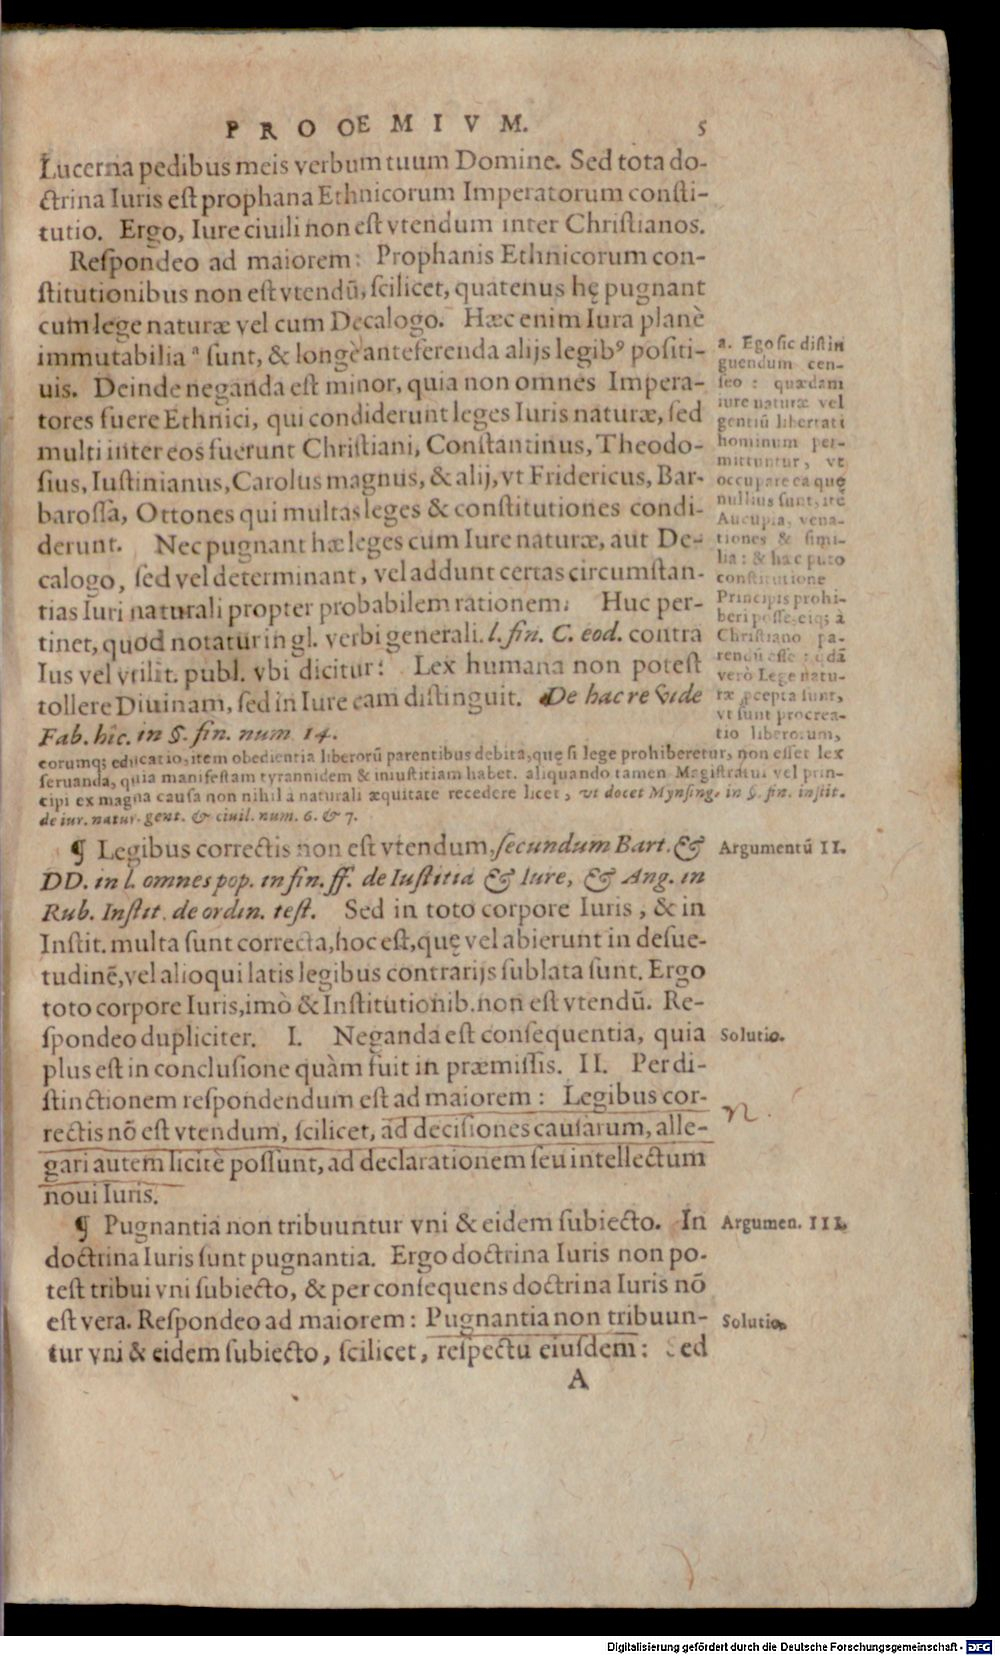 PROOEMIVM. 5
Lucerna pedibus meis verbum tuum Domine. Sed tota do-
ctrina Iuris est prophana Ethnicorum Imperatorum consti-
tutio. Ergo, Iure ciuili non est vtendum inter Christianos.
Respondeo ad maiorem: Prophanis Ethnicorum con-
stitutionibus non est vtendū, scilicet, quatenus hę pugnant
cum lege naturæ vel cum Decalogo. Hæc enim Iura planè
immutabilia ª sunt, & longè anteferenda alijs legibꝰ positi-
uis. Deinde neganda est minor, quia non omnes Impera-
tores fuere Ethnici, qui condiderunt leges Iuris naturæ, sed
multi inter eos fuerunt Christiani, Constantinus, Theodo-
sius, Iustinianus, Carolus magnus, & alij, vt Fridericus, Bar-
barossa, Ottones qui multas leges & constitutiones condi-
derunt. Nec pugnant hæ leges cum Iure naturæ, aut De-
calogo, sed vel determinant, vel addunt certas circumstan-
tias Iuri naturali propter probabilem rationem. Huc per-
tinet, quod notatur in gl. verbi generali. l. fin. C. eod. contra
Ius vel vtilit. publ. vbi dicitur: Lex humana non potest
tollere Diuinam, sed in Iure eam distinguit. De hac re vide
Fab. hîc. in §. fin. num 14.
a. Ego sic distin
guendum cen-
seo: quædam
iure naturæ vel
gentiū libertati
hominum per-
mittuntur, vt
occupare ea quę
nullius sunt, itē
Aucupia, vena-
tiones & simi-
lia: & hac puto
constitutione
Principis prohi-
beri posse, eiqȝ à
Christiano pa-
rendū esse: qdā
verò Lege natu-
ræ p̄cepta sunt,
vt sunt procrea-
tio liberorum,
eorumqȝ educatio, item obedientia liberorū parentibus debita, quę si lege prohiberetur, non esset lex
seruanda, quia manifestam tyrannidem & iniustitiam habet. aliquando tamen Magistratui vel prin-
cipi ex magna causa non nihil à naturali æquitate recedere licet, vt docet Mynsing. in §. fin. instit.
de iur. natur. gent. & ciuil. num. 6. & 7.
¶ Legibus correctis non est vtendum, secundum Bart. &
Argumentū II.
DD. in l. omnes pop. in fin. ff. de Iustitia & Iure, & Ang. in
Rub. Instit. de ordin. test. Sed in toto corpore Iuris, & in
Instit. multa sunt correcta, hoc est, quę vel abierunt in desue-
tudinē, vel alioqui latis legibus contrarijs sublata sunt. Ergo
toto corpore Iuris, imò & Institutionib. non est vtendū. Re-
spondeo dupliciter. I. Neganda est consequentia, quia
Solutio.
plus est in conclusione quàm fuit in præmissis. II. Per di-
stinctionem respondendum est ad maiorem: Legibus cor-
rectis nō est vtendum, scilicet, ad decisiones causarum, alle-
gari autem licitè possunt, ad declarationem seu intellectum
noui Iuris.
¶ Pugnantia non tribuuntur vni & eidem subiecto. In
Argumen. III.
doctrina Iuris sunt pugnantia. Ergo doctrina Iuris non po-
test tribui vni subiecto, & per consequens doctrina Iuris nō
est vera. Respondeo ad maiorem: Pugnantia non tribuun-
Solutio.
tur vni & eidem subiecto, scilicet, respectu eiusdem: Sed
A
Digitalisierung gefördert durch die Deutsche Forschungsgemeinschaft - DFG